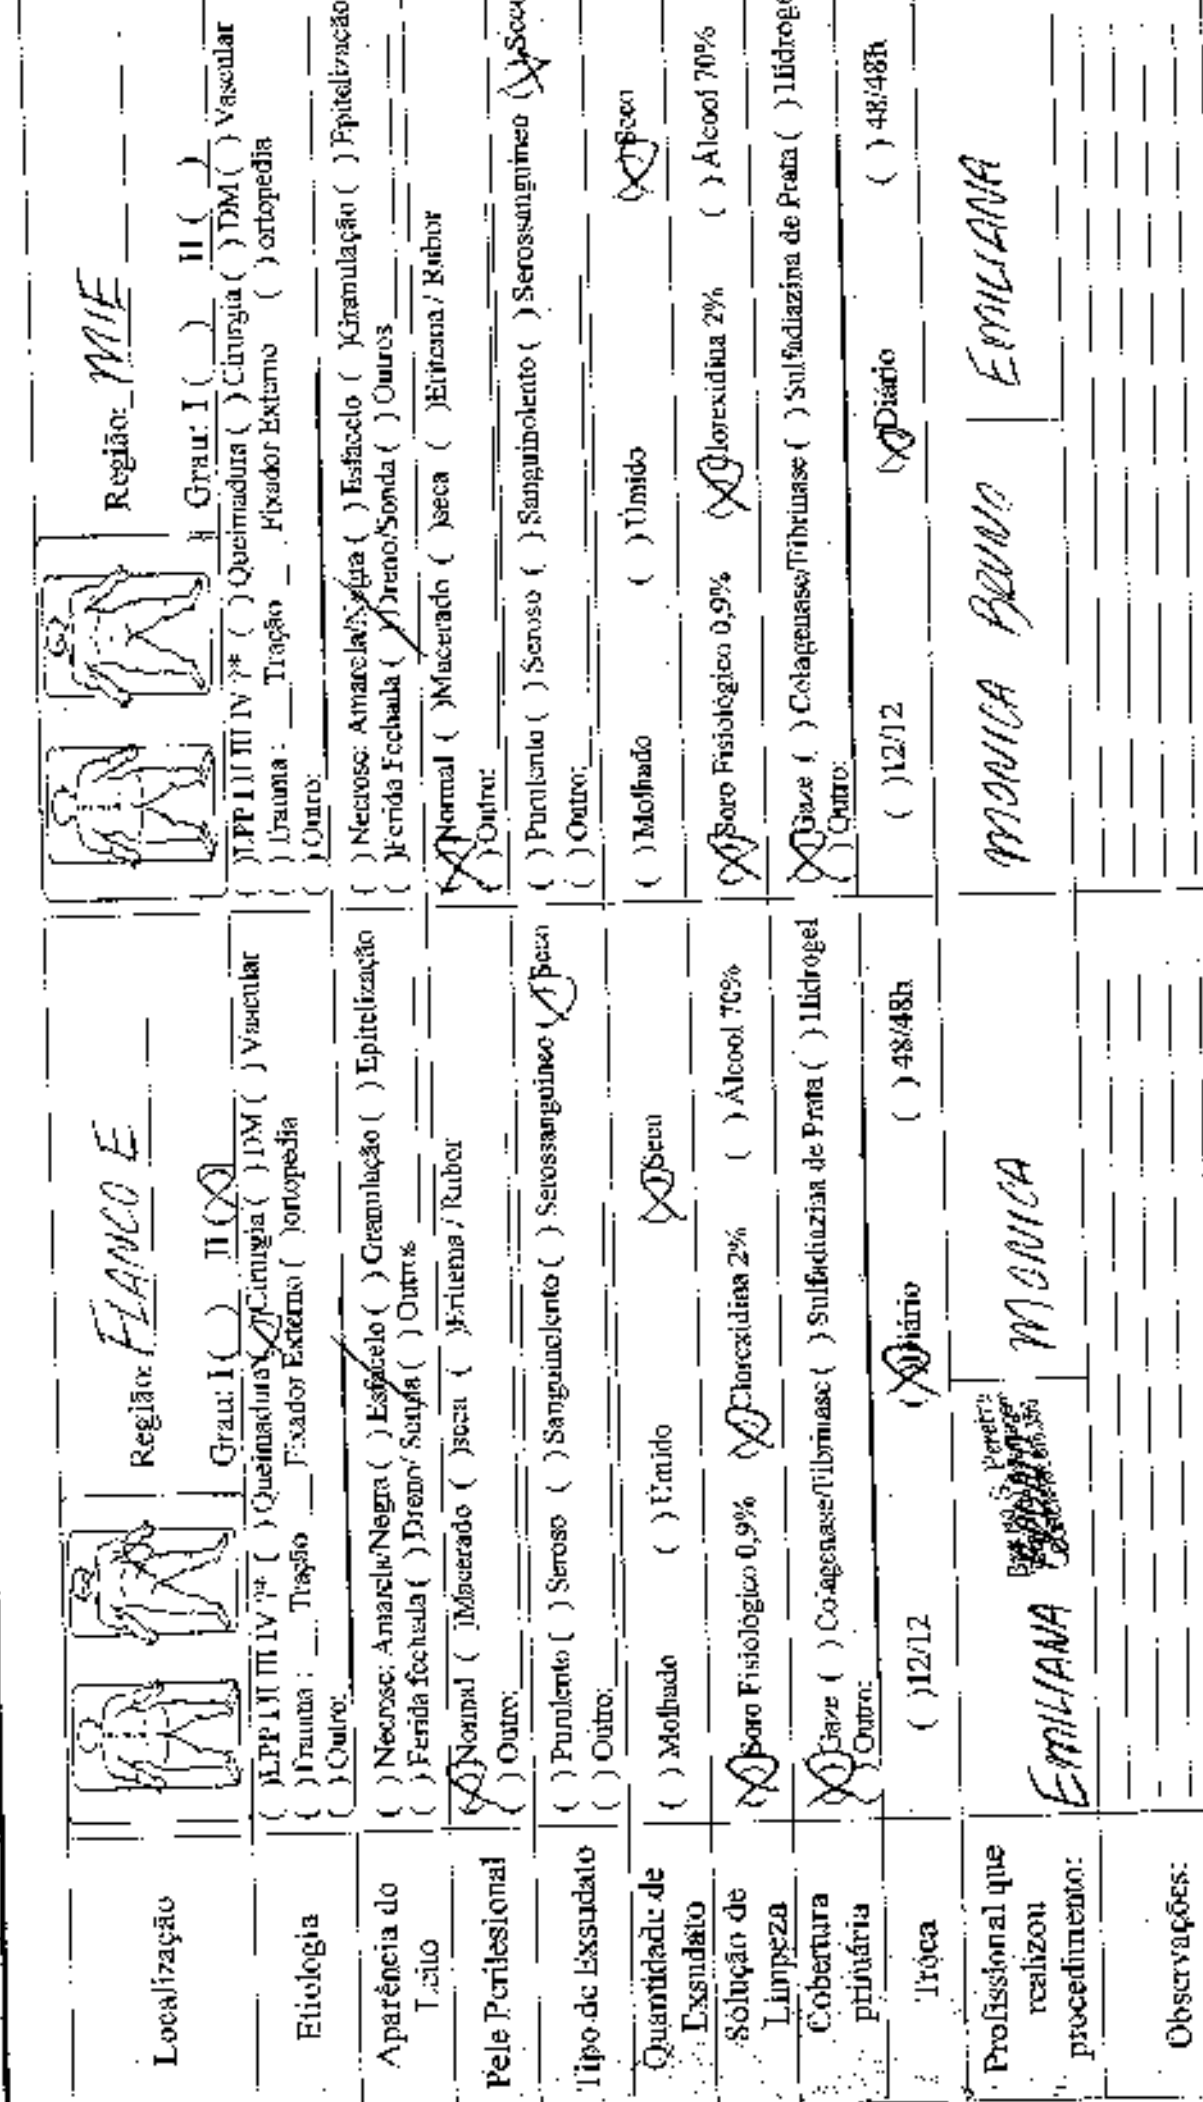 Localização
Região: FLANCO E
Grau: I ( ) II (X)
Região: MIE
Grau: I ( ) II ( )
Etiologia
( )LPP I II III IV ?* ( ) Queimadura (X)Cirurgia ( ) DM ( ) Vascular
( ) Trauma : __ Tração __ Fixador Externo ( )ortopedia
( ) Outro:
( )LPP I II III IV ?* ( ) Queimadura ( ) Cirurgia ( ) DM ( ) Vascular
( ) Trauma : __ Tração __ Fixador Externo ( ) ortopedia
( ) Outro:
Aparência do Leito
( ) Necrose: Amarela/Negra ( ) Esfacelo ( ) Granulação ( ) Epitelização
( ) Ferida fechada ( ) Dreno/ Sonda ( ) Outros
( ) Necrose: Amarela/Negra ( ) Esfacelo ( )Granulação ( ) Epitelização
( )Ferida Fechada ( ) Dreno/Sonda ( ) Outros
Pele Perilesional
(X)Normal ( )Macerado ( )seca ( )Eritema / Rubor
( ) Outro:
(X)Normal ( )Macerado ( )seca ( )Eritema / Rubor
( ) Outro:
Tipo de Exsudato
( ) Purulento ( ) Seroso ( ) Sanguinolento ( ) Serossanguineo (X)Seco
( ) Outro:
( ) Purulento ( ) Seroso ( ) Sanguinolento ( ) Serossanguineo (X)Seco
( ) Outro:
Quantidade de Exsudato
( ) Molhado ( ) Úmido (X)Seco
( ) Molhado ( ) Úmido (X)Seco
Solução de Limpeza
(X)Soro Fisiológico 0,9% (X)Clorexidina 2% ( ) Álcool 70%
(X)Soro Fisiológico 0,9% (X)Clorexidina 2% ( ) Álcool 70%
Cobertura primária
(X)Gaze ( ) Colagenase/Fibrinase ( ) Sulfadiazina de Prata ( ) Hidrogel
( ) Outro:
(X)Gaze ( ) Colagenase/Fibrinase ( ) Sulfadiazina de Prata ( ) Hidrogel
( ) Outro:
Troca
( )12/12 (X)Diário ( ) 48/48h
( )12/12 (X)Diário ( ) 48/48h
Profissional que realizou procedimento:
EMILIANA MONICA
MONICA BRUNO EMILIANA
Observações: